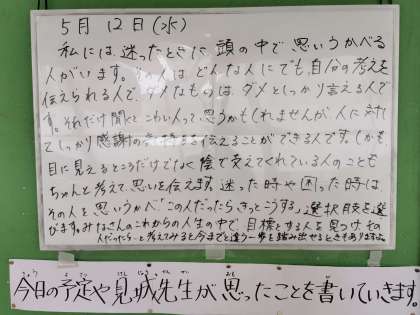 5月12日(水)
私には、迷ったときに頭の中で思いうかべる
人がいます。その人は、どんな人にでも、自分の考えを
伝えられる人で、ダメなものは、ダメとしっかり言える人で
す。それだけ聞くと、こわい人って思うかもしれませんが、人に対し
てしっかり感謝の気持ちを伝えることができる人です。しかも
目に見えるところだけでなく、陰で支えてくれている人のことも
ちゃんと考えて、思いを伝えます。迷った時や困った時は
その人を思いうかべ「この人だったら、きっとこうする」選択肢を選
びます。みなさんのこれからの人生の中で、目標とする人を見つけ、その
人だったら…と考えてみると今までと違う一歩を踏み出せるときもありますよ。
今日の予定や見城先生が思ったことを書いていきます。